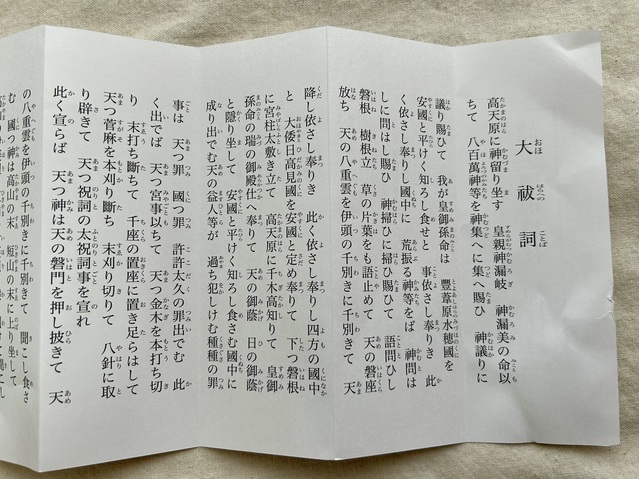 大祓詞
高天原に神留り坐す　皇親神漏岐　神漏美の命以
ちて　八百萬神等を神集へに集へ賜ひ　神議りに
議り賜ひて　我が皇御孫命は　豐葦原水穗國を
安國と平けく知ろし食せと　事依さし奉りき　此
く依さし奉りし國中に　荒振る神等をば　神問は
しに問はし賜ひ　神掃ひに掃ひ賜ひて　語問ひし
磐根　樹根立　草の片葉をも語止めて　天の磐座
放ち　天の八重雲を伊頭の千別きに千別きて　天
降し依さし奉りき　此く依さし奉りし四方の國中
と　大倭日高見國を安國と定め奉りて　下つ磐根
に宮柱太敷き立て　高天原に千木高知りて　皇御
孫命の瑞の御殿仕へ奉りて　天の御蔭　日の御蔭
と隱り坐して　安國と平けく知ろし食さむ國中に
成り出でむ天の益人等が　過ち犯しけむ種種の罪
事は　天つ罪　國つ罪　許許太久の罪出でむ　此
く出でば　天つ宮事以ちて　天つ金木を本打ち切
り　末打ち斷ちて　千座の置座に置き足らはして
天つ菅麻を本刈り斷ち　末刈り切りて　八針に取
り辟きて　天つ祝詞の太祝詞事を宣れ
此く宣らば　天つ神は天の磐門を押し披きて　天
の八重雲を伊頭の千別きに千別きて　聞こし食さ
む　國つ神は高山の末　短山の末に上り坐して